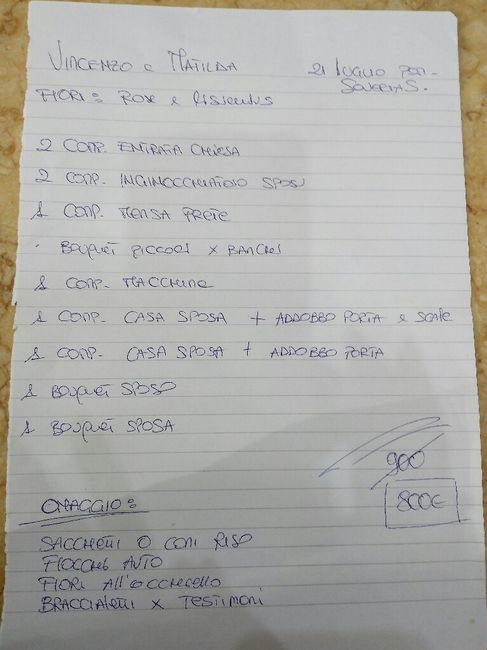 VINCENZO e MATILDA
21 LUGLIO
FIORI: ROSE e lisiantus
2 COMP. ENTRATA CHIESA
2 COMP. INGINOCCHIATOIO SPOSI
1 COMP. MENSA PRETE
· BOUQUET PICCOLI X BANCHI
1 COMP. MACCHINA
1 COMP. CASA SPOSA + ADDOBBO PORTA e SCALE
1 COMP. CASA SPOSA + ADDOBBO PORTA
1 BOUQUET SPOSO
1 BOUQUET SPOSA
900
800€
OMAGGIO:
SACCHETTI O CONI RISO
FIOCCHI AUTO
FIORI All'OCCHIELLO
BRACCIALETTI X TESTIMONI